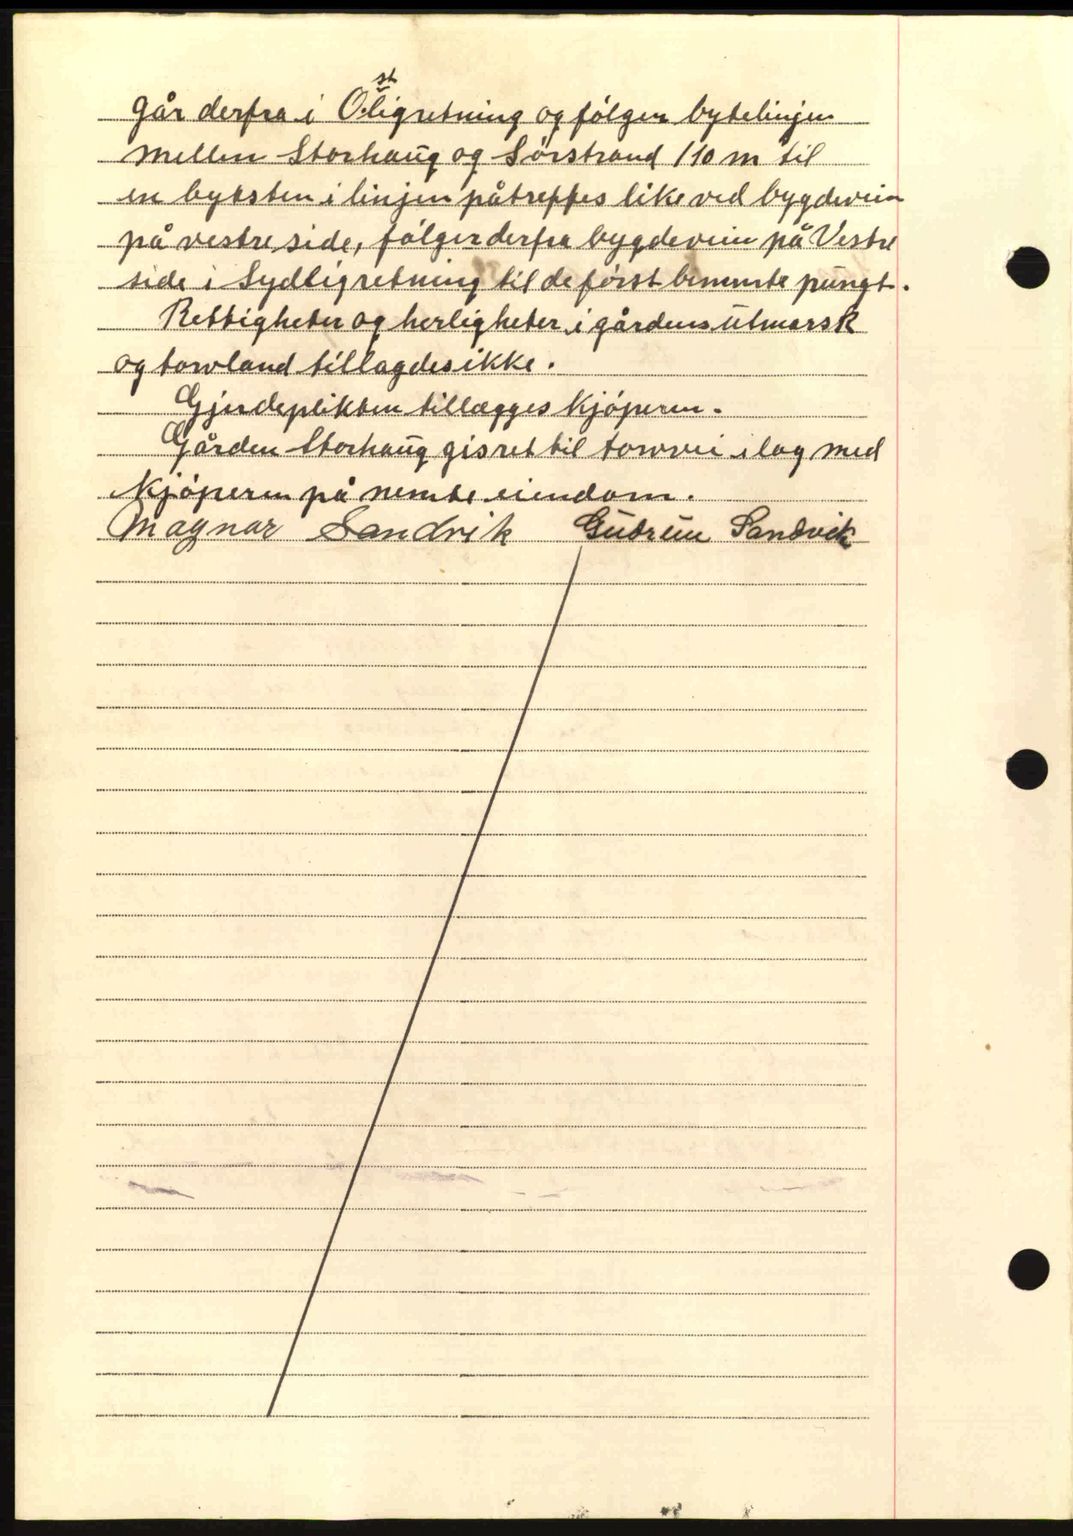 går derfra i Østligretning og følger bytelinjen
mellem Storhaug og Sørstrand 110 m til
en byksten i linjen påtreffes like ved bygdevein
på vestre side, følger derfra bygdevein på Vestre
side i Sydligretning til de først bemmte pungt.
Rettigheter og herligheter i gårdens utmarsk
og torvland tillagdes ikke.
Gjerdeplikten tillægges Kjøperen.
Gården Storhaug gis ret til torvvei i lag med
Kjøperen på nemte eiendom.
Magnar Sandvik Gudrun Sandvik